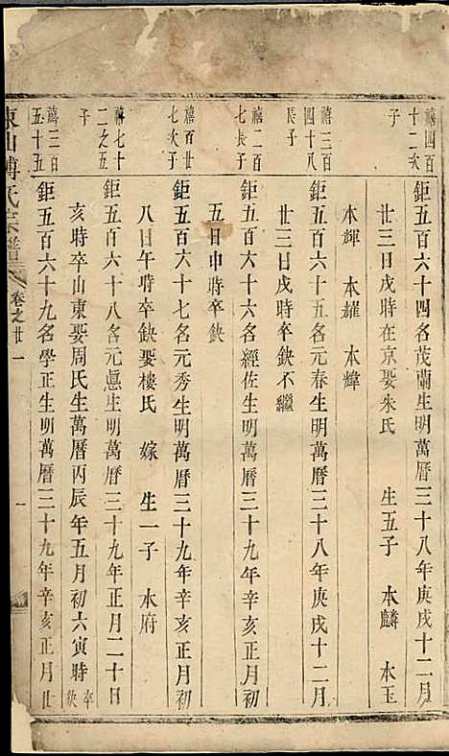 禧四百
十二次
子
鉅五百六十四名茂蘭生明萬曆三十八年庚戌十二月
廿三日戌時在京娶朱氏 生五子 本麟 本玉
本輝 本耀 本緯
禧三百
四十八
長子
鉅五百六十五名元春生明萬曆三十八年庚戌十二月
廿三日戌時卒缺不繼
禧二百
七長子
鉅五百六十六名經佐生明萬曆三十九年辛亥正月初
五日申時卒缺
禧百廿
七次子
鉅五百六十七名元秀生明萬曆三十九年辛亥正月初
八日午時卒缺娶樓氏 嫁 生一子 本府
禧七十
二之五
子
鉅五百六十八名元真生明萬曆三十九年正月二十日
亥時卒山東娶周氏生萬曆丙辰年五月初六寅時卒缺
禧三百
五十五
鉅五百六十九名學正生明萬曆三十九年辛亥正月廿
東山傅氏宗譜 卷之廿一 一